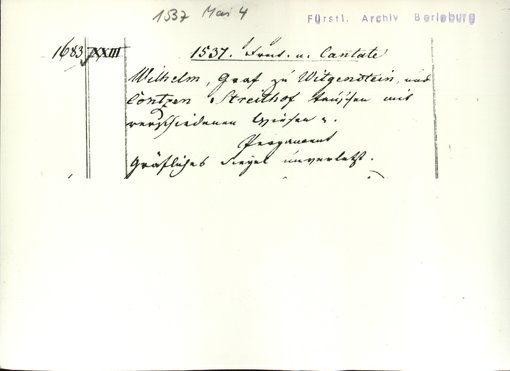 1537 Mai 4
Fürstl. Archiv Berleburg
1683 XXIII 1537. Freit. n. Cantate
Wilhelm, Graf zu Witgenstein, und
Contzen Streithof tauschen mit
verschiedenen Wiesen
Pergament
Gräfliches Siegel unverletzt.